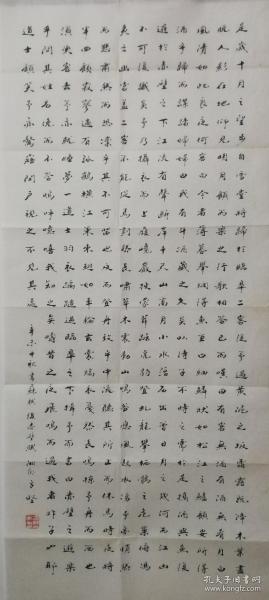 是歲十月之望步自雪堂將歸於臨皋二客從予過黃泥之坂霜露既降木葉盡
脫人影在地仰見明月顧而樂之行歌相答已而歎曰有客無酒有酒無肴月白
風清如此良夜何客曰今者薄暮舉網得魚巨口細鱗狀如松江之鱸顧安所得
酒乎歸而謀諸婦婦曰我有斗酒藏之久矣以待子不時之需於是攜酒與魚復
遊於赤壁之下江流有聲斷岸千尺山高月小水落石出曾日月之幾何而江山
不可復識矣予乃攝衣而上履巉巖披蒙茸踞虎豹登虬龍攀栖鶻之危巢俯馮
夷之幽宮蓋二客不能從焉劃然長嘯草木震動山鳴谷應風起水涌予亦悄然
而悲肅然而恐凜乎其不可留也反而登舟放乎中流聽其所止而休焉時夜將
半四顧寂寥適有孤鶴橫江東來翅如車輪玄裳縞衣戛然長鳴掠予舟而西也
須臾客去予亦就睡夢一道士羽衣蹁躚過臨皋之下揖予而言曰赤壁之遊樂
乎問其姓名俛而不答嗚呼噫嘻我知之矣疇昔之夜飛鳴而過我者非子也耶
道士顧笑予亦驚寤開戶視之不見其處
辛未中秋書蘇軾後赤壁賦
孔夫子旧书网